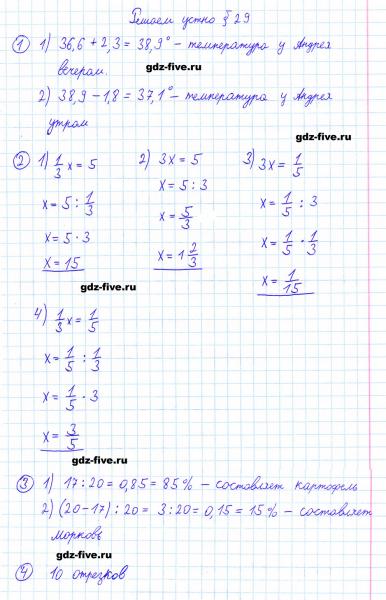 Решаем устно § 29
① 1) 36,6 + 2,3 = 38,9° – температура у Андрея
вечером.
gdz-five.ru
2) 38,9 – 1,8 = 37,1° – температура у Андрея
gdz-five.ru
утром
② 1) 1/3 x = 5
x = 5 : 1/3
x = 5 · 3
x = 15
2) 3x = 5
x = 5 : 3
x = 5/3
x = 1 2/3
3) 3x = 1/5
x = 1/5 : 3
x = 1/5 · 1/3
x = 1/15
gdz-five.ru
gdz-five.ru
4) 1/3 x = 1/5
x = 1/5 : 1/3
x = 1/5 · 3
x = 3/5
gdz-five.ru
③ 1) 17 : 20 = 0,85 = 85% – составляет картофель
2) (20 – 17) : 20 = 3 : 20 = 0,15 = 15% – составляет
морковь
gdz-five.ru
④ 10 отрезков